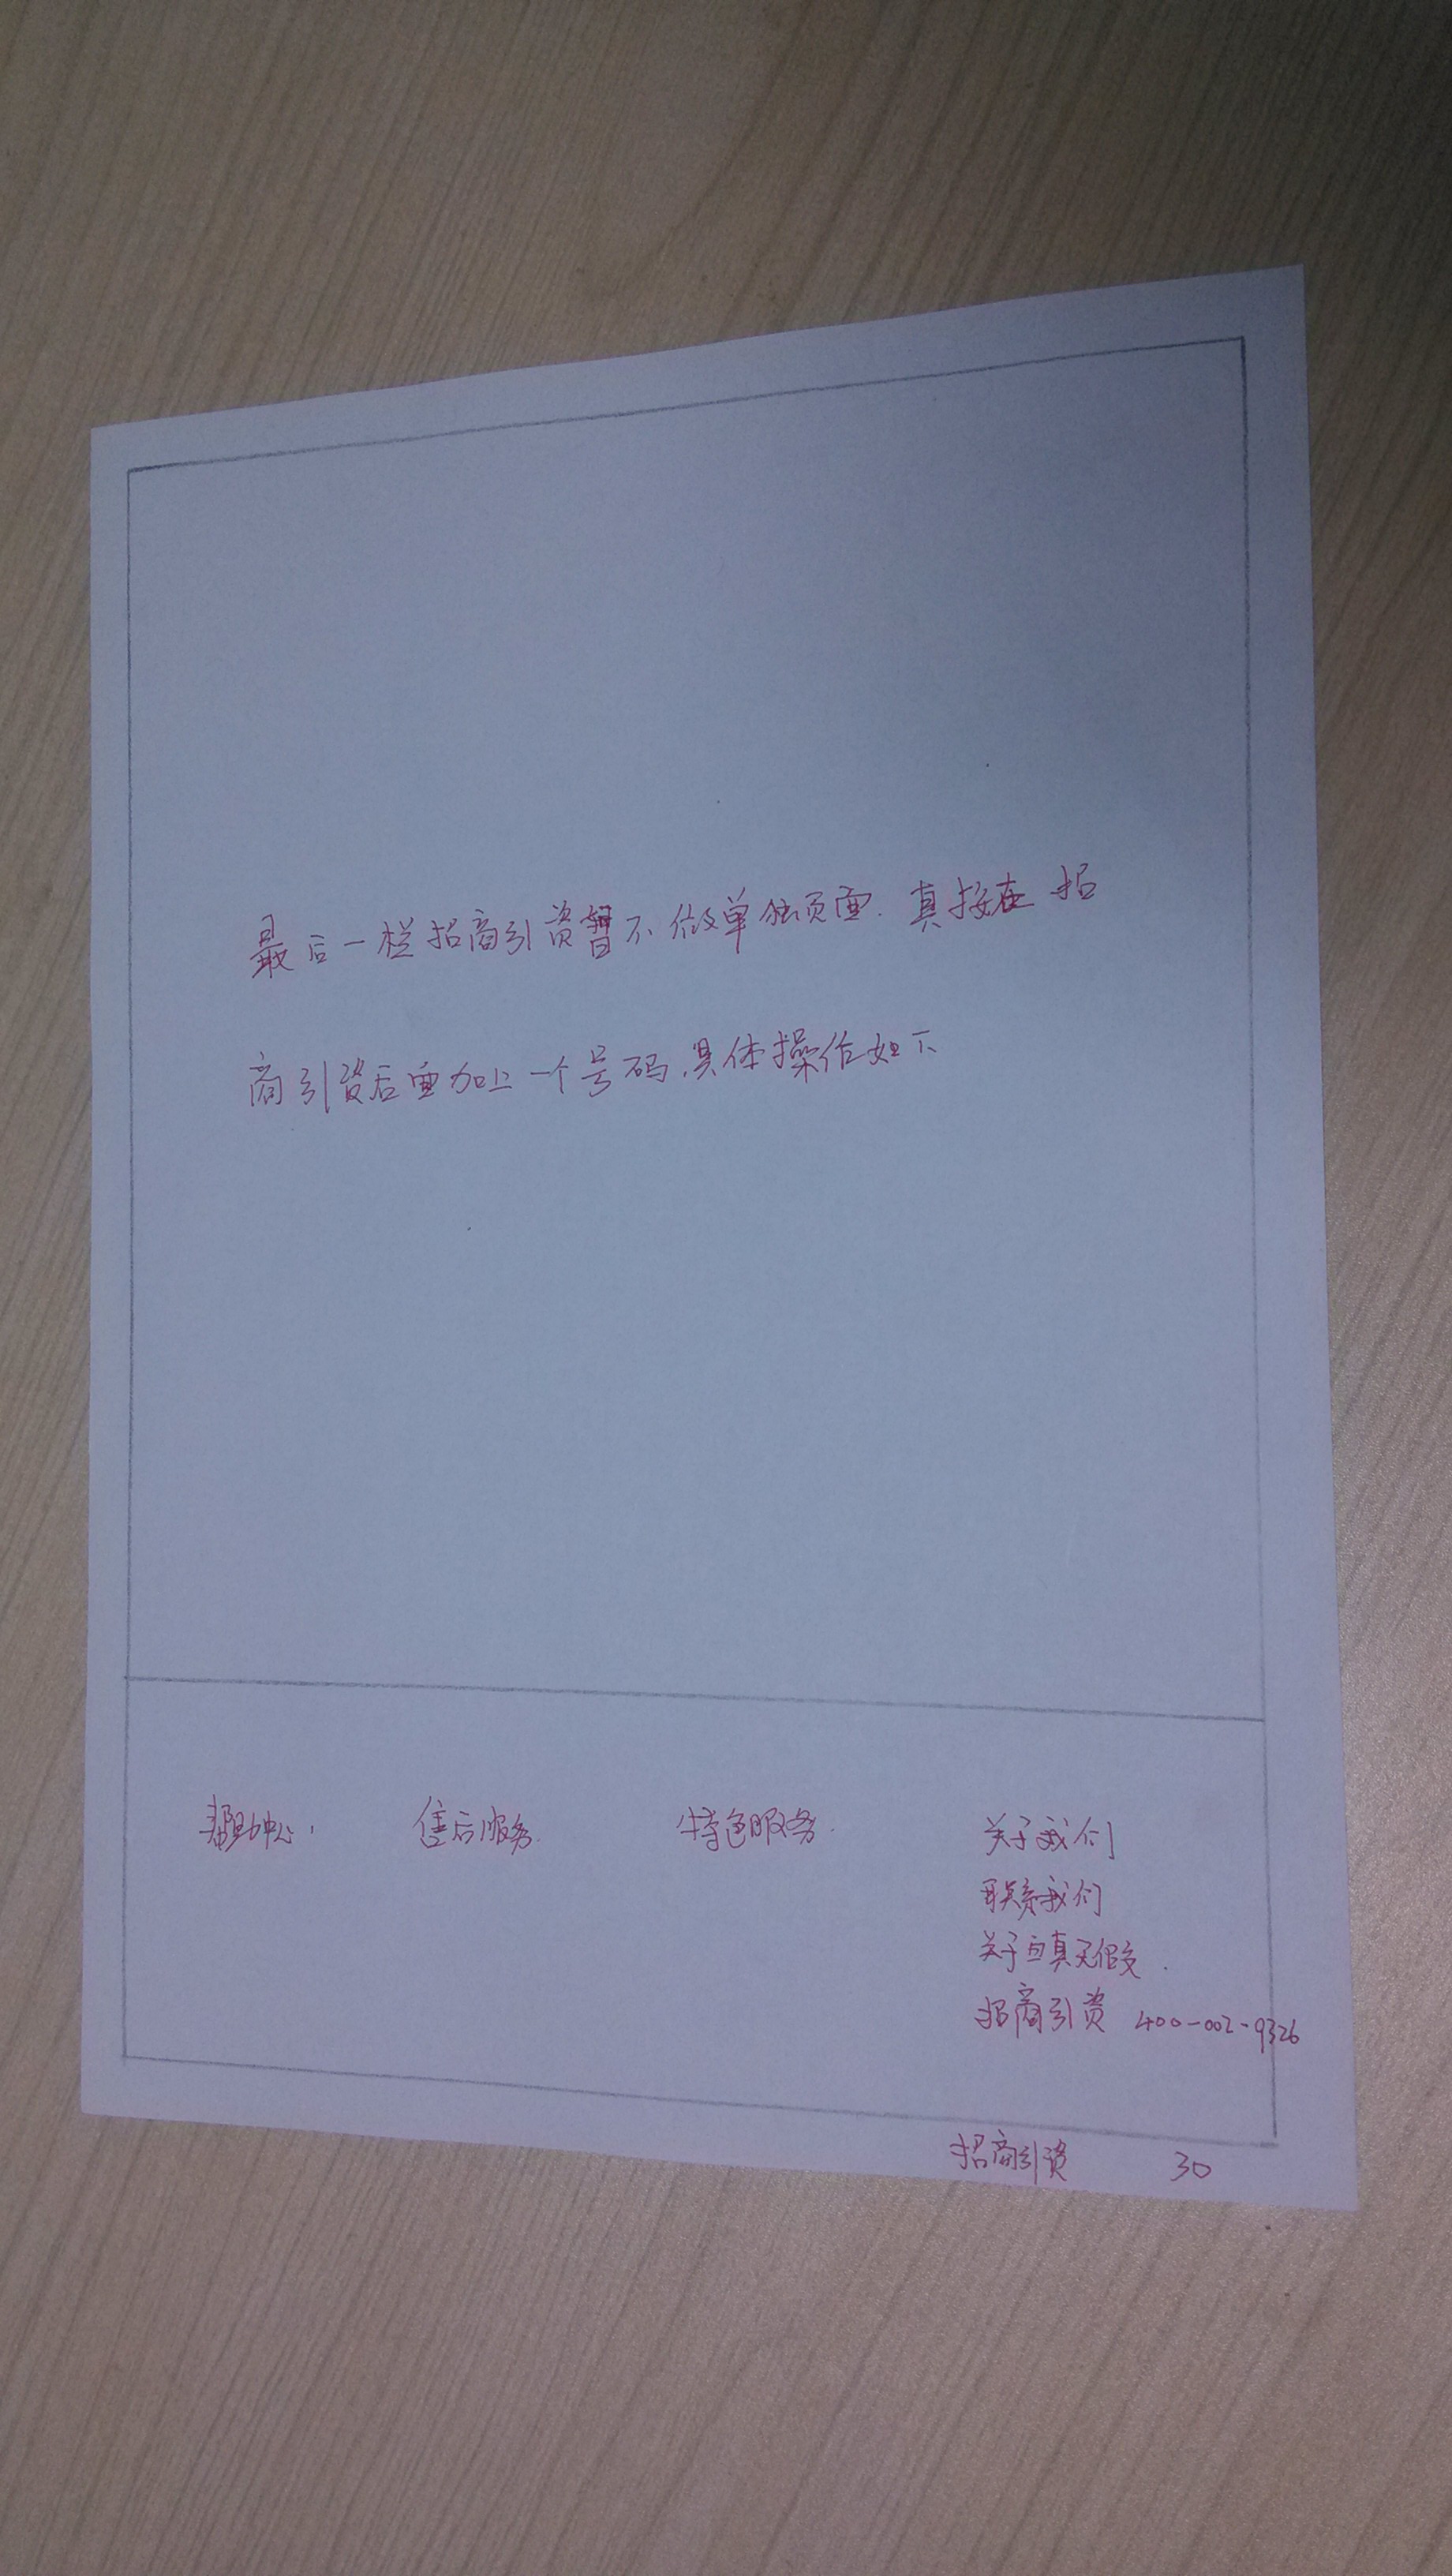 最后一栏招商引资暂不做单独页面.直接在 招
商引资后面加上一个号码,具体操作如下
帮助中心, 售后服务. 特色服务. 关于我们
联系我们
关于
招商引资 400-002-9326
招商引资 30